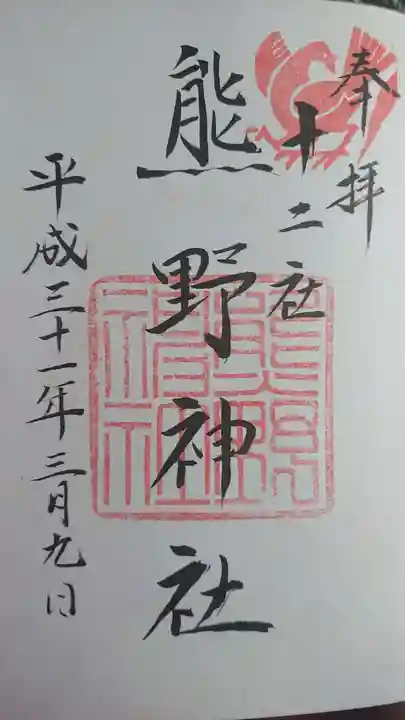 奉拝
十二社
熊野神社
平成三十一年三月九日
熊野
神社